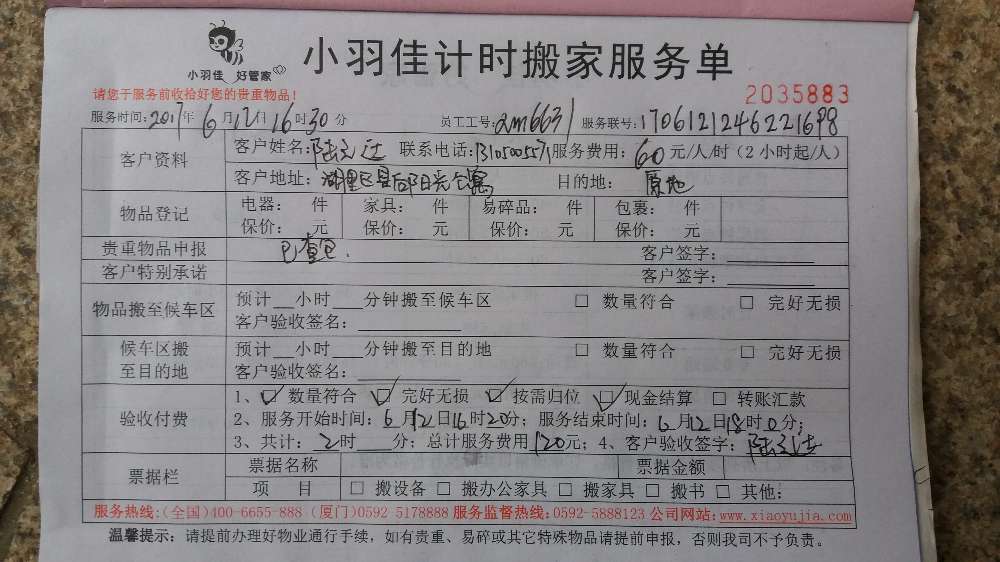 小羽佳 好管家
小羽佳计时搬家服务单
请您于服务前收拾好您的贵重物品！
2035883
服务时间：2017年6月12日16时30分 员工工号：2m6631 服务联号：1706121246221698
客户资料
客户姓名：陆 达 联系电话：1310500557 服务费用：60元/人/时（2小时起/人）
客户地址：湖里区县后阳光公寓 目的地：原地
物品登记
电器： 件 家具： 件 易碎品： 件 包裹： 件
保价： 元 保价： 元 保价： 元 保价： 元
贵重物品申报 已查包. 客户签字：
客户特别承诺 客户签字：
物品搬至候车区
预计__小时___分钟搬至候车区 □ 数量符合 □ 完好无损
客户验收签名：
候车区搬至目的地
预计__小时___分钟搬至目的地 □ 数量符合 □ 完好无损
客户验收签名：
验收付费
1、☑ 数量符合 ☑ 完好无损 ☑ 按需归位 ☑ 现金结算 □ 转账汇款
2、服务开始时间：6月12日16时20分；服务结束时间：6月12日18时0分；
3、共计：2时___分；总计服务费用120元；4、客户验收签字：陆 达
票据栏
票据名称 票据金额
项 目 □ 搬设备 □ 搬办公家具 □ 搬家具 □ 搬书 □ 其他：
服务热线：(全国)400-6655-888 (厦门)0592 5178888 服务监督热线：0592-5888123 公司网站：www.xiaoyujia.com
温馨提示：请提前办理好物业通行手续，如有贵重、易碎或其它特殊物品请提前申报，否则我司不予负责。